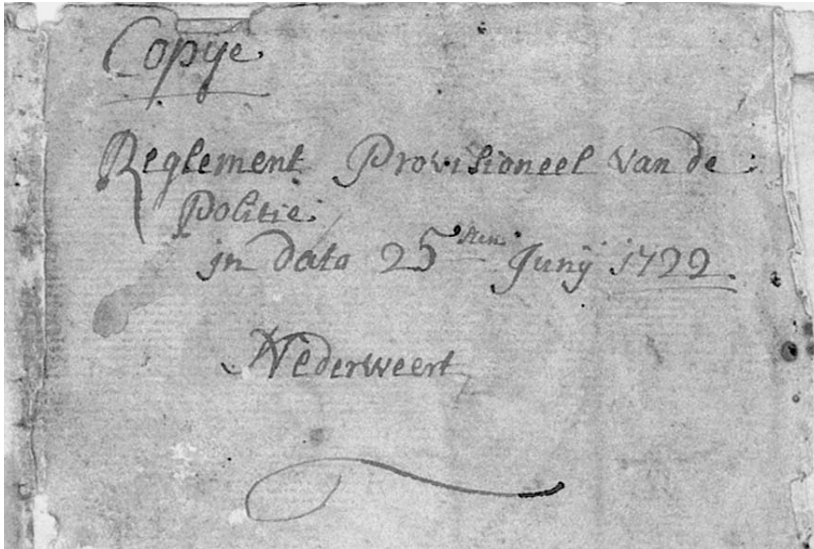 Copije
Reglement Provisioneel van de
Politie
in data 25sten Junij 1722.
Nederweert